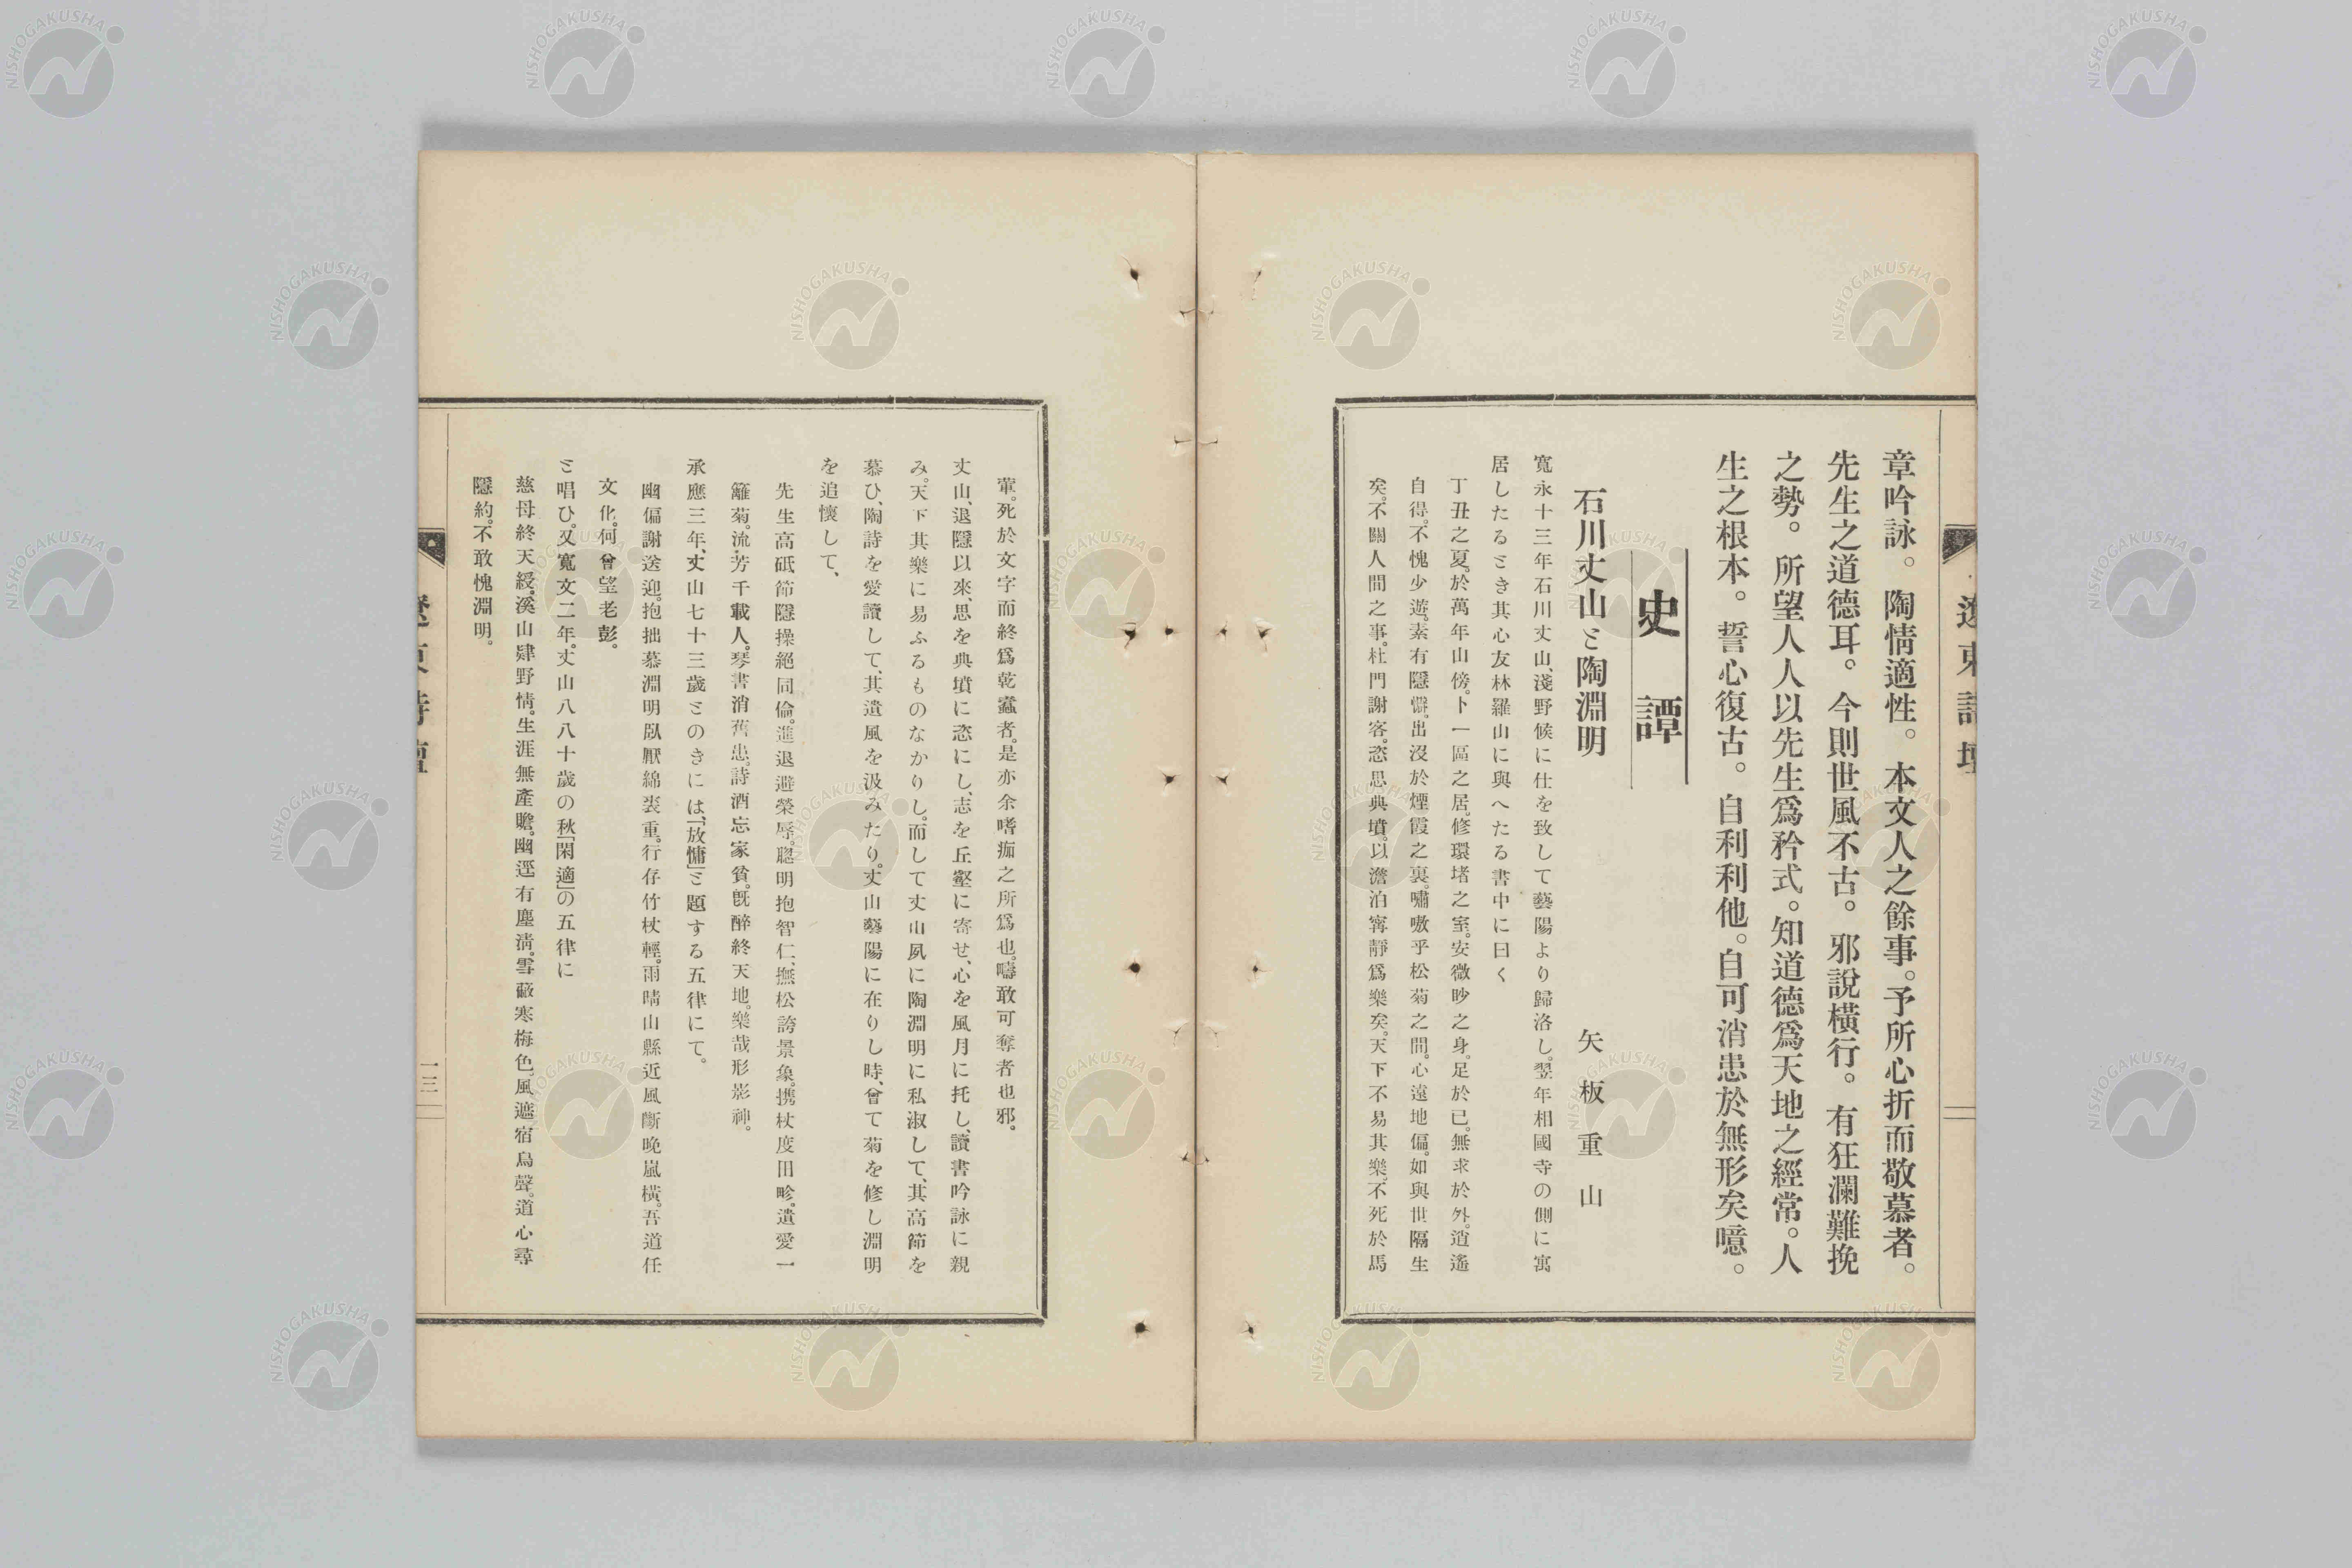 章吟詠。陶情適性。本文人之餘事。予所心折而敬慕者。
先生之道德耳。今則世風不古。邪說橫行。有狂瀾難挽
之勢。所望人人以先生爲矜式。知道德爲天地之經常。人
生之根本。誓心復古。自利利他。自可消患於無形矣噫。
史譚
石川丈山と陶淵明
矢板重山
寬永十三年石川丈山、淺野候に仕を致して藝陽より歸洛し。翌年相國寺の側に寓
居したるとき其心友林羅山に與へたる書中に曰く
丁丑之夏。於萬年山傍。卜一區之居。修環堵之室。安微眇之身。足於已。無求於外。逍遙
自得。不愧少遊。素有隱僻。出沒於煙霞之裏。嘯嗷乎松菊之間。心遠地偏。如與世隔生
矣。不關人間之事。杜門謝客。恣思典墳。以澹泊寗靜爲樂矣。天下不易其樂。不死於馬
革。死於文字而終爲乾蠹者。是亦余嗜痂之所爲也。疇敢可奪者也邪。
丈山、退隱以來、思を典墳に恣にし、志を丘壑に寄せ、心を風月に托し、讀書吟詠に親
み。天下其樂に易ふるものなかりし。而して丈山夙に陶淵明に私淑して、其高節を
慕ひ、陶詩を愛讀して、其遺風を汲みたり。丈山藝陽に在りし時、曾て菊を修し淵明
を追懷して、
先生高砥節隱操絕同倫。進退遊榮辱。聰明抱智仁、撫松誇景象。携杖度田畛。遺愛一
籬菊。流芳千載人。琴書消舊患。詩酒忘家貧。既醉終天地。樂哉形影神。
承應三年、丈山七十三歲とのきには、「放慵」と題する五律にて。
幽偏謝送迎。抱拙慕淵明臥厭綿裘重。行存竹杖輕。雨晴山縣近風斷晚嵐橫。吾道任
文化。何曾望老彭。
と唱ひ。又寬文二年。丈山八八十歲の秋「閑適」の五律に
慈母終天綬。溪山肆野情。生涯無產贍。幽逕有塵淸。雪蔽寒梅色。風遮宿鳥聲。道心尋
隱約。不敢愧淵明。
一三